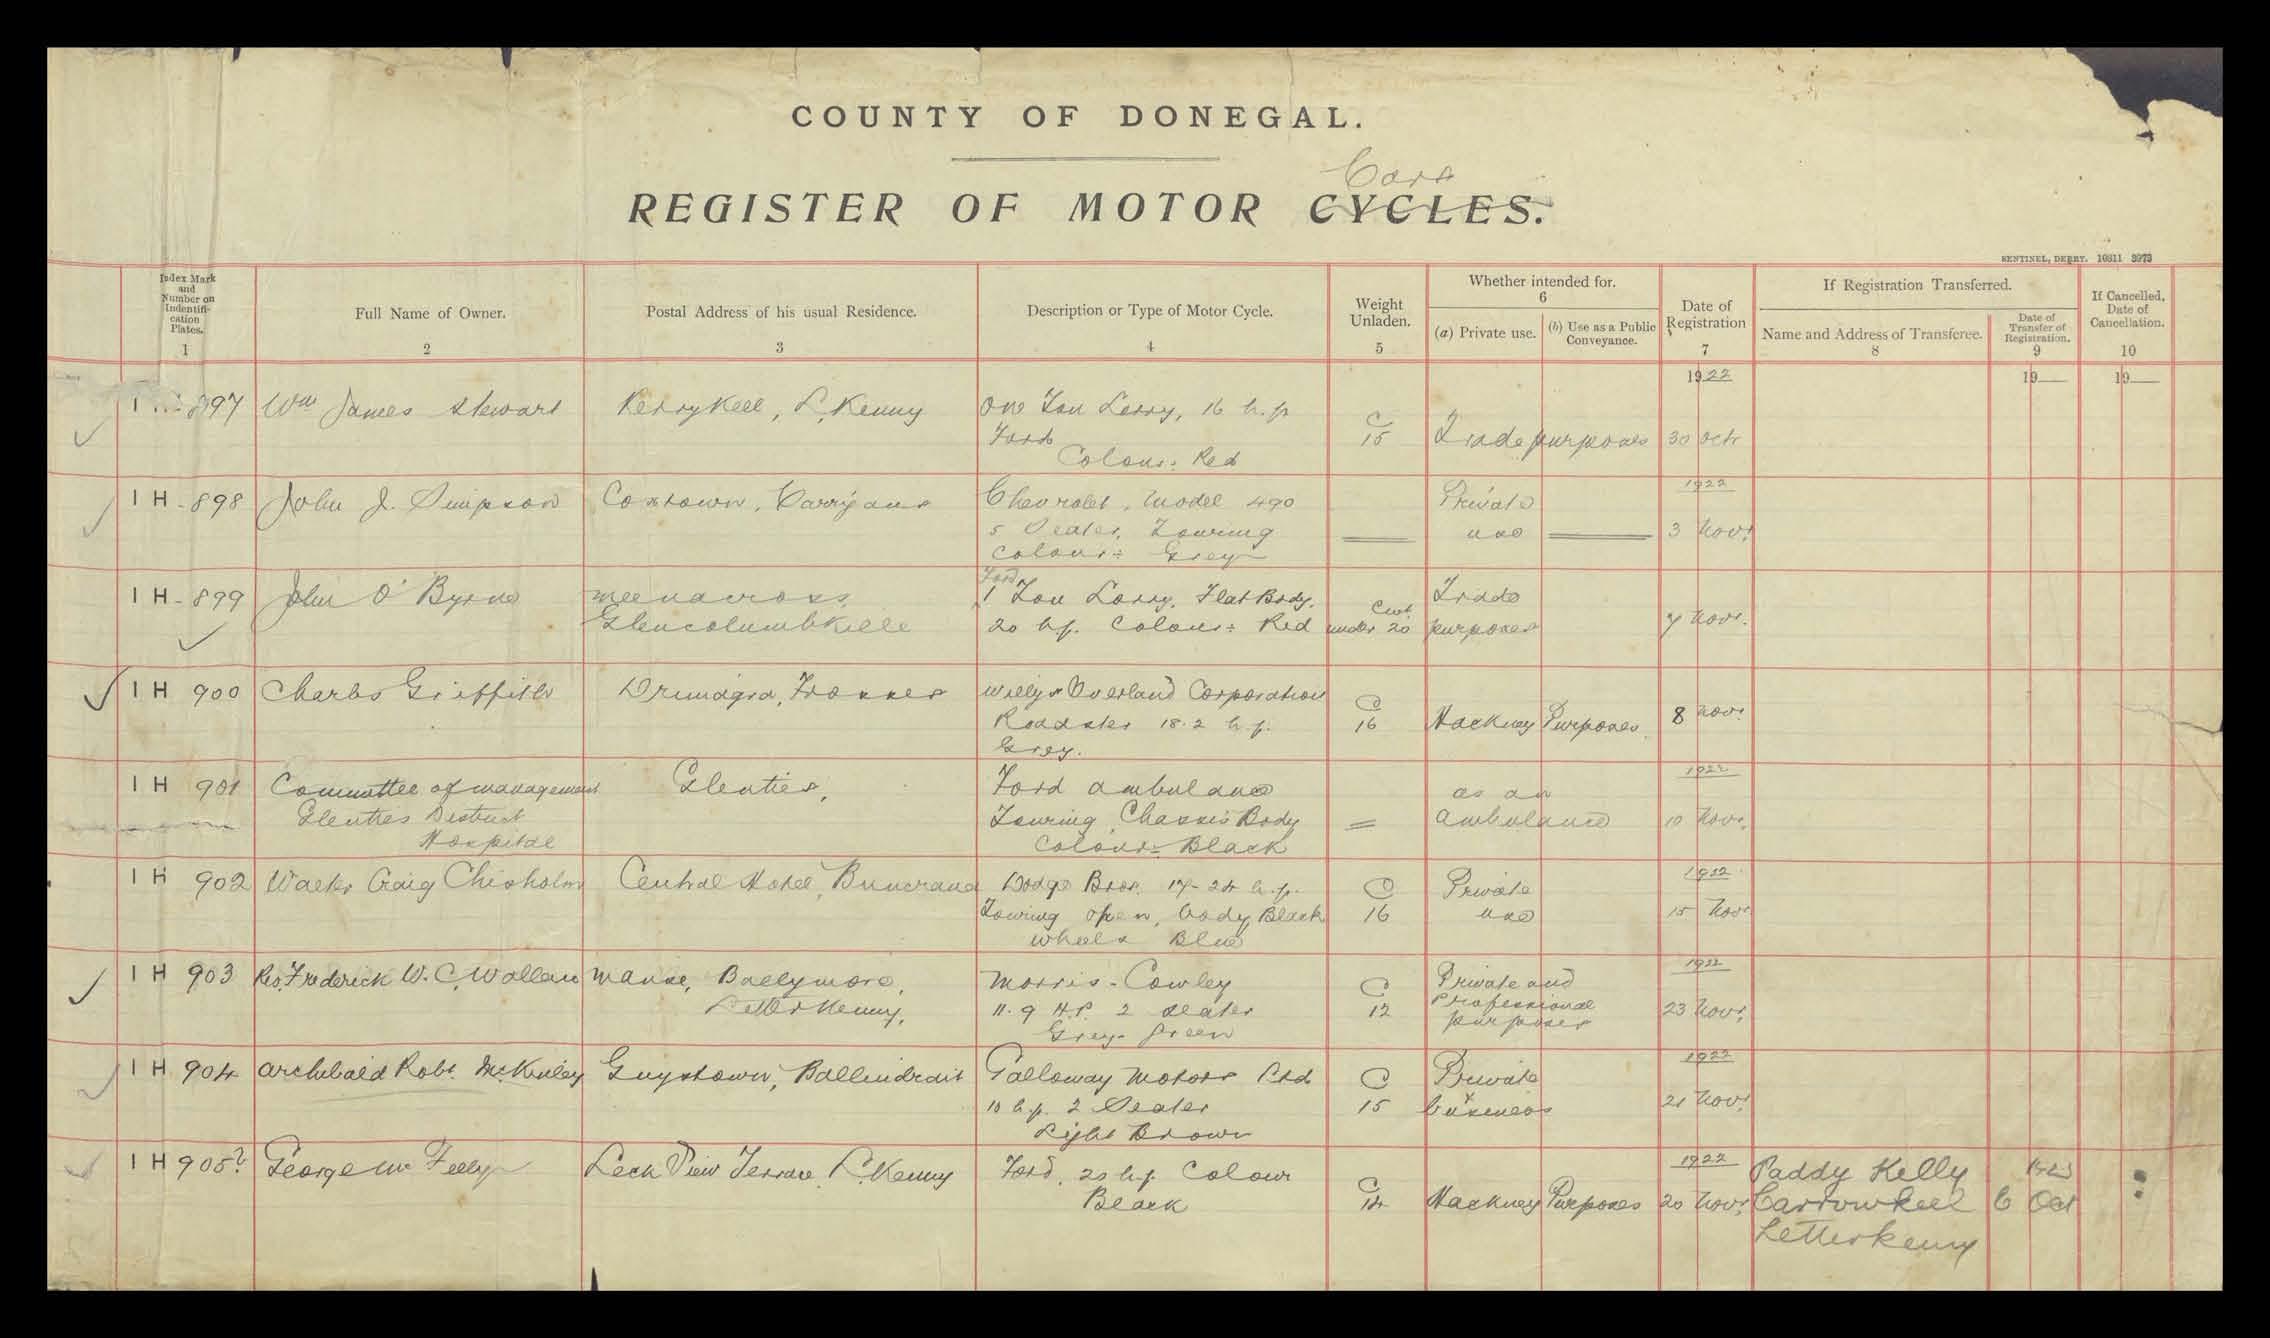 COUNTY OF DONEGAL.
Cars
REGISTER OF MOTOR CYCLES.
SENTINEL, DERRY. 10811 3973
Index Mark and Number on Indentifi- cation Plates. 1
Full Name of Owner. 2
Postal Address of his usual Residence. 3
Description or Type of Motor Cycle. 4
Weight Unladen. 5
Whether intended for. 6
(a) Private use.
(b) Use as a Public Conveyance.
Date of Registration 7
If Registration Transferred.
Name and Address of Transferee. 8
Date of Transfer of Registration. 9
If Cancelled, Date of Cancellation. 10
1922 19 19
I H 897 Wm James Stewart Kerrykeel, L.Kenny One Ton Lorry, 16 h.p
Ford C 15 Trade purposes 30 Octr
Colour: Red
I H - 898 John J. Simpson Coxtown, Carrigans Chevrolet, Model 490 Private 1922
5 Seater, Touring use 3 Novr.
Colour: Grey
I H - 899 John O'Byrne Meenacross, Ford 1 Ton Lorry, Flat Body, Trade
Glencolumbkille 20 h.p. Colour: Red under 20 Cwt purposes 7 Novr.
I H 900 Charles Griffith Drumagra, Frosses Willys Overland Corporation
Roadster 18.2 h.p. C 16 Hackney Purposes. 8 Novr.
Grey.
I H 901 Committee of management Glenties, Ford ambulance as an 1922
Glenties District Touring, Chassis Body ambulance 10 Novr.
Hospital Colour: Black
I H 902 Walter Craig Chisholm Central Hotel, Buncrana Dodge Bros. 17-24 h.p. C Private 1922
Touring open, body Black 16 use 15 Novr
Wheels Blue
I H 903 Rev. Frederick W. C. Wallace Manse, Ballymore, Morris-Cowley C Private and 1922
Letterkenny, 11.9 H.P. 2 Seater 12 Professional 23 Novr.
Grey-green purposes
I H 904 Archibald Robt. McKinley Guystown, Ballindrait Galloway Motors Ltd C Private 1922
10 h.p. 2 Seater 15 business 21 Novr.
Light Brown
I H 905? George Mc Feely Leck View Terrace, L.Kenny Ford, 20 h.p. Colour C 1922 Paddy Kelly
Black 14 Hackney Purposes 20 Novr. Carrowkeel 6 Oct
Letterkenny